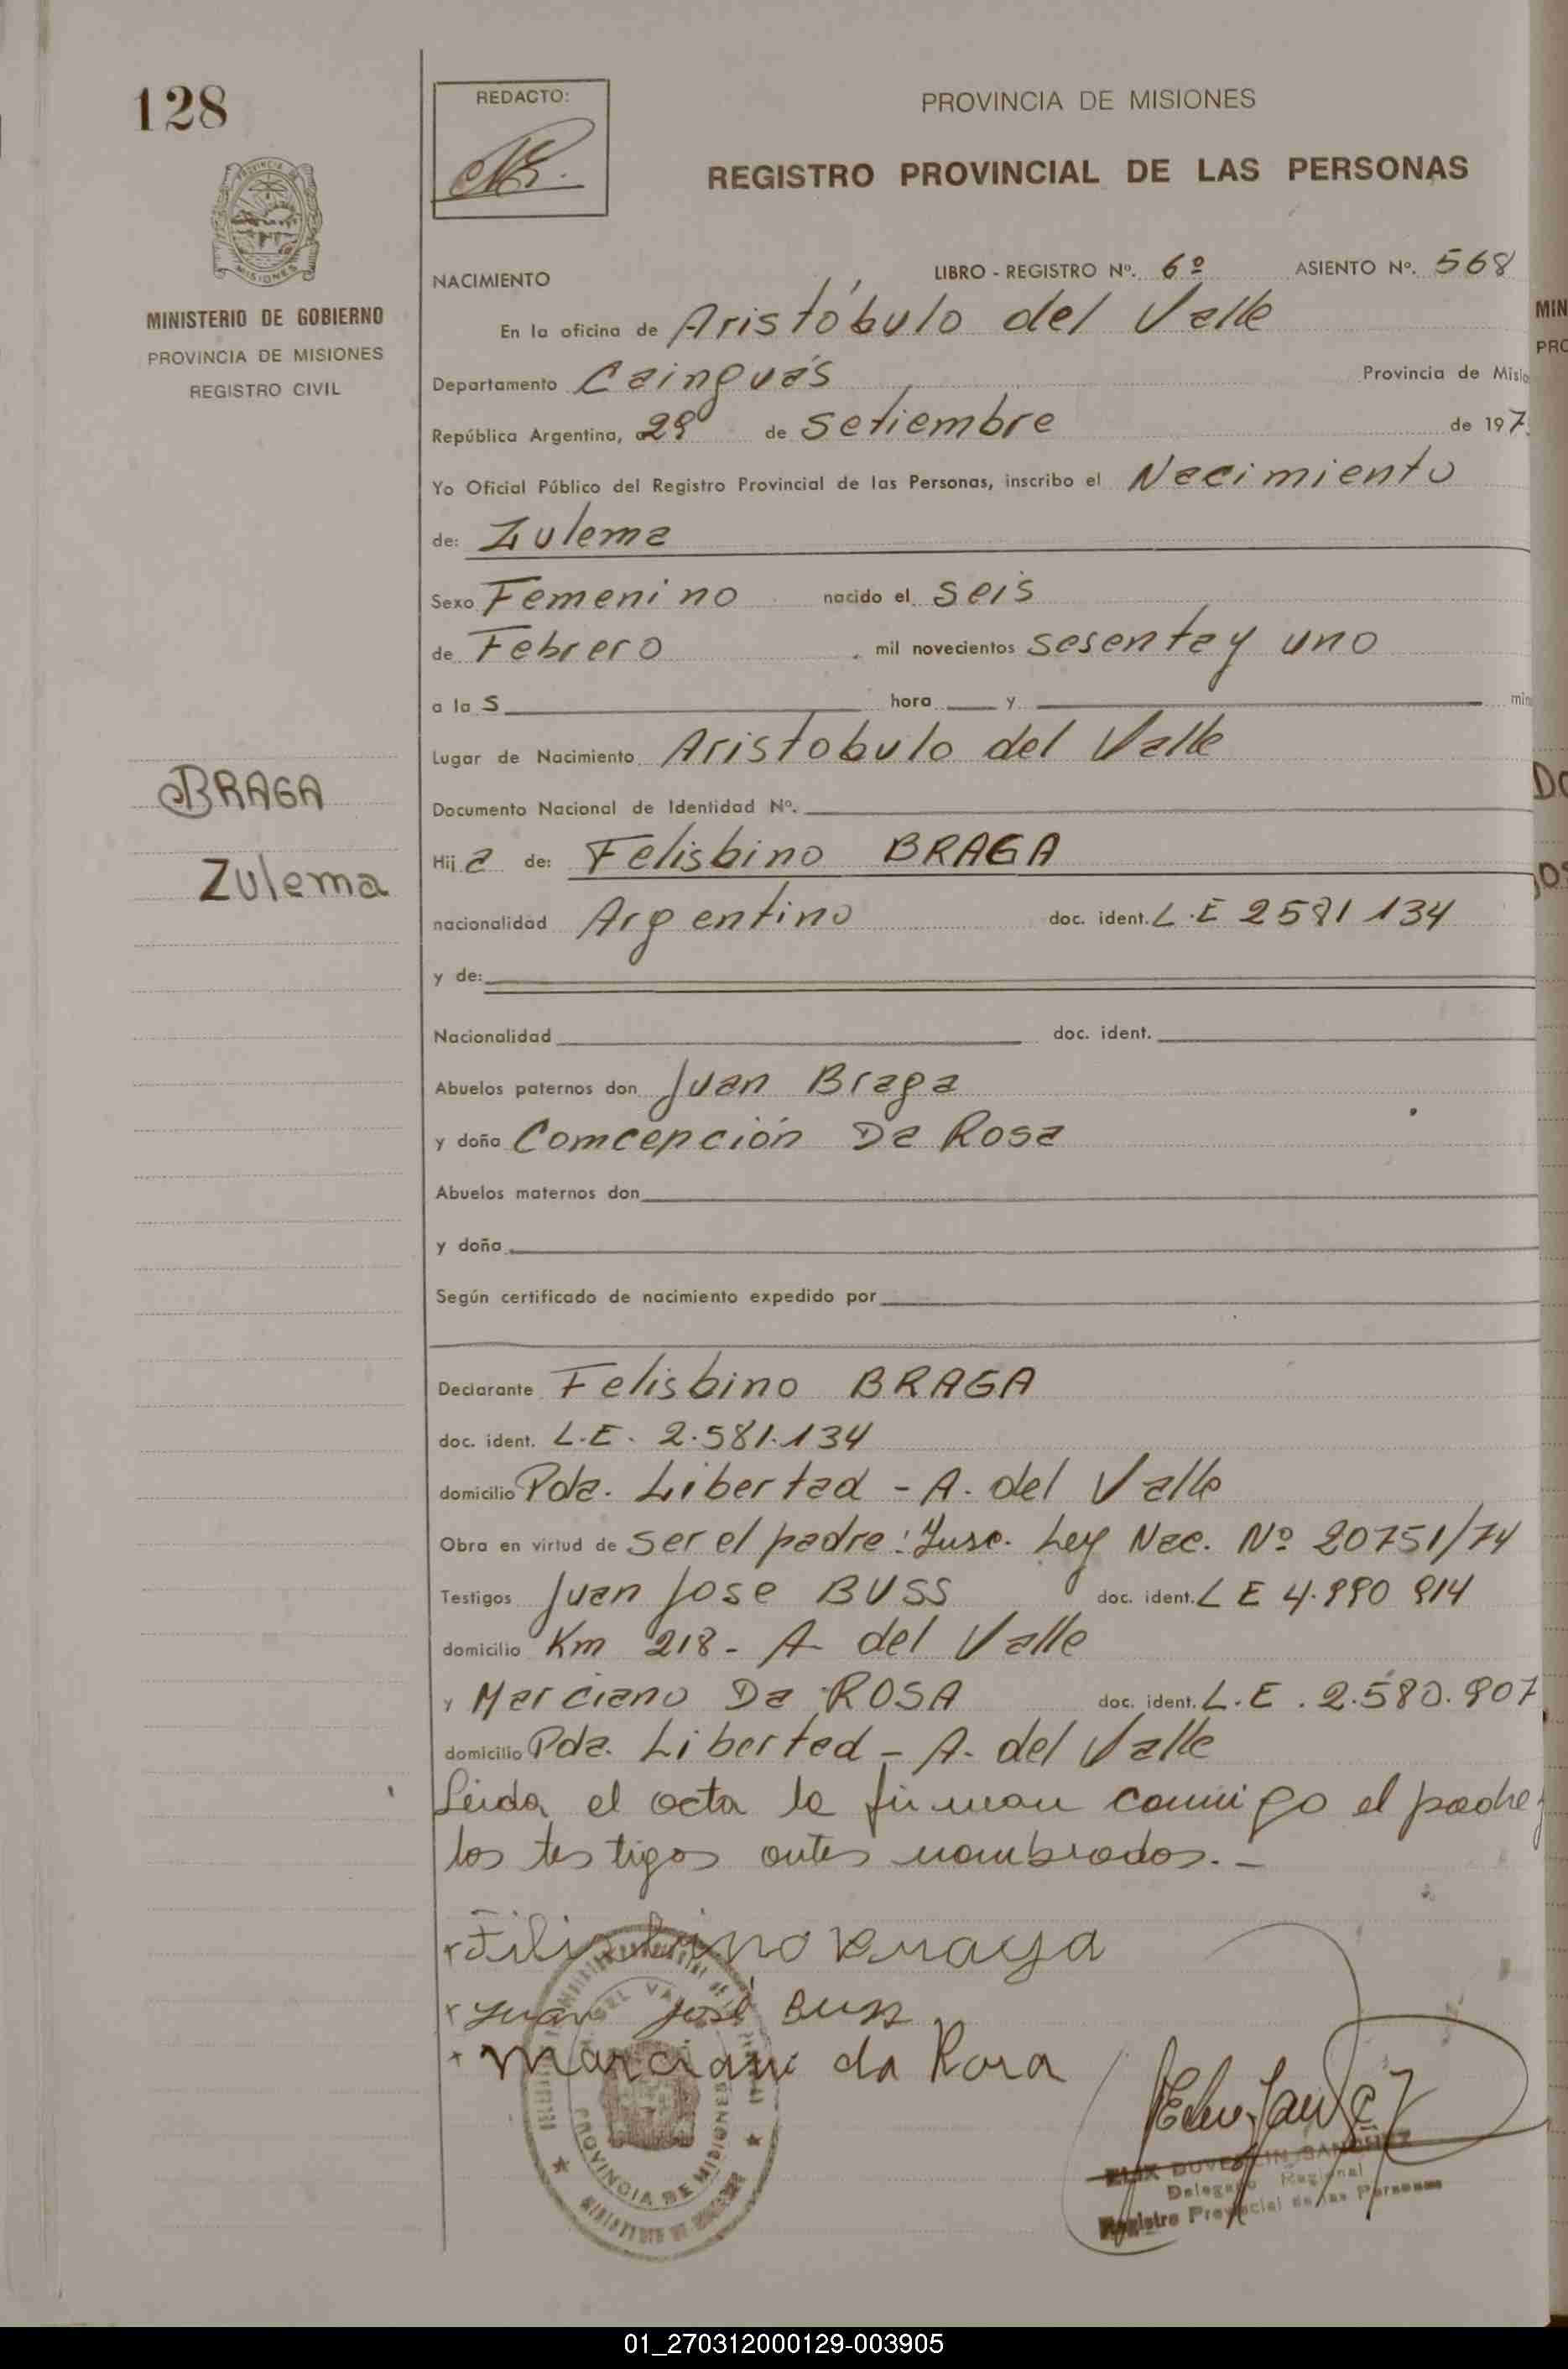 128
REDACTO:
PROVINCIA DE MISIONES
REGISTRO PROVINCIAL DE LAS PERSONAS
MISIONES
MINISTERIO DE GOBIERNO
PROVINCIA DE MISIONES
REGISTRO CIVIL
NACIMIENTO LIBRO - REGISTRO Nº. 6º ASIENTO Nº. 568
En la oficina de Aristóbulo del Valle
Departamento Cainguás Provincia de
República Argentina, a 29 de Setiembre de 197
Yo Oficial Público del Registro Provincial de las Personas, inscribo el Nacimiento
de: Zulema
Sexo Femenino nacido el seis
de Febrero mil novecientos sesenta y uno
a la s hora y
Lugar de Nacimiento Aristobulo del Valle
BRAGA
Zulema
Documento Nacional de Identidad Nº.
Hij a de: Felisbino BRAGA
nacionalidad Argentino doc. ident. L.E 2581134
y de:
Nacionalidad doc. ident.
Abuelos paternos don Juan Braga
y doña Comcepción Da Rosa
Abuelos maternos don
y doña
Según certificado de nacimiento expedido por
Declarante Felisbino BRAGA
doc. ident. L.E. 2.581.134
domicilio Pda. Libertad - A. del Valle
Obra en virtud de ser el padre: Insc. Ley Nac. Nº 20751/74
Testigos Juan Jose BUSS doc. ident. L E
domicilio Km 218 - A del Valle
y Marciano Da ROSA doc. ident. L.E. 2.580.907
domicilio Pda. Libertad - A. del Valle
Leida el acta la firman conmigo el padre y
los testigos antes nombrados. -
Juan José Buss
Marciano da Rosa
PROVINCIA DE MISIONES
Delegado Regional
Registro Provincial de las Personas
01_270312000129-003905